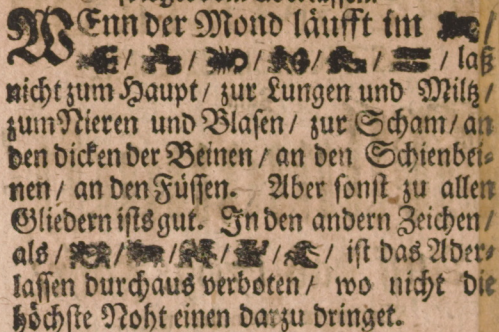 WEnn der Mond läufft im /
/ / / / / / laß
nicht zum Haupt / zur Lungen und Miltz /
zum Nieren und Blasen / zur Scham / an
den dicken der Beinen / an den Schienbei-
nen / an den Füssen. Aber sonst zu allen
Gliedern ists gut. In den andern Zeichen /
als / / / / / / ist das Ader-
lassen durchaus verboten / wo nicht die
höchste Noht einen darzu dringet.